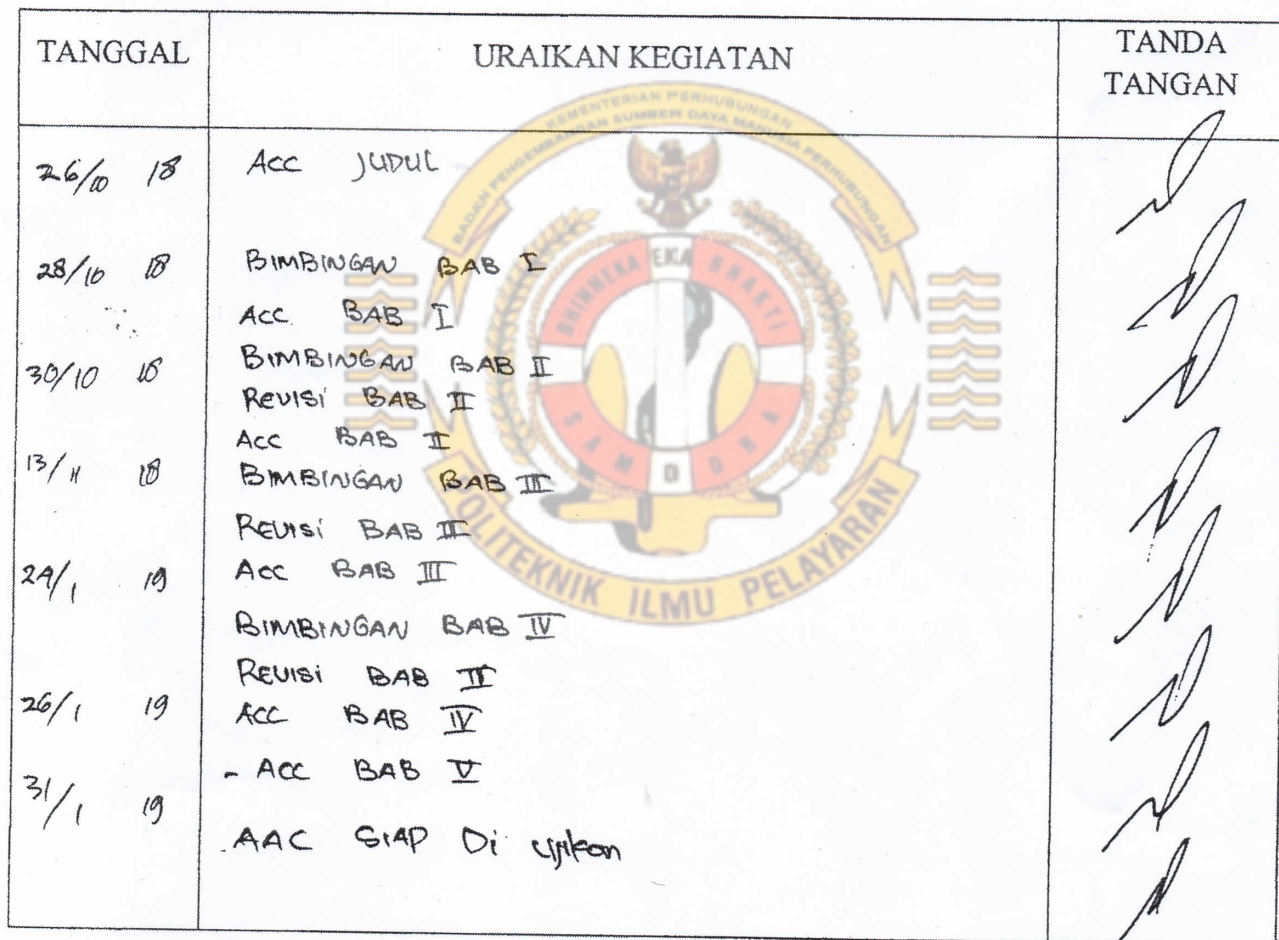 TANGGAL URAIKAN KEGIATAN TANDA TANGAN
26/10 18 ACC JUDUL
28/10 18 BIMBINGAN BAB I
ACC BAB I
30/10 18 BIMBINGAN BAB II
REVISI BAB II
ACC BAB II
13/11 18 BIMBINGAN BAB III
REVISI BAB III
24/1 19 ACC BAB III
BIMBINGAN BAB IV
REVISI BAB II
26/1 19 ACC BAB IV
- ACC BAB V
31/1 19
AAC SIAP Di ujikan
KEMENTERIAN PERHUBUNGAN
BADAN PENGEMBANGAN SUMBER DAYA MANUSIA PERHUBUNGAN
BHINNEKA EKA BHAKTI
SAMUDRA
POLITEKNIK ILMU PELAYARAN